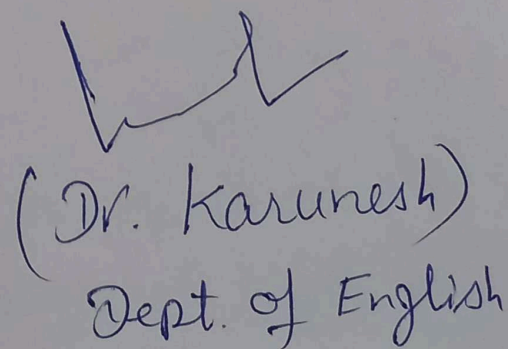 (Dr. Karunesh)
Dept. of English